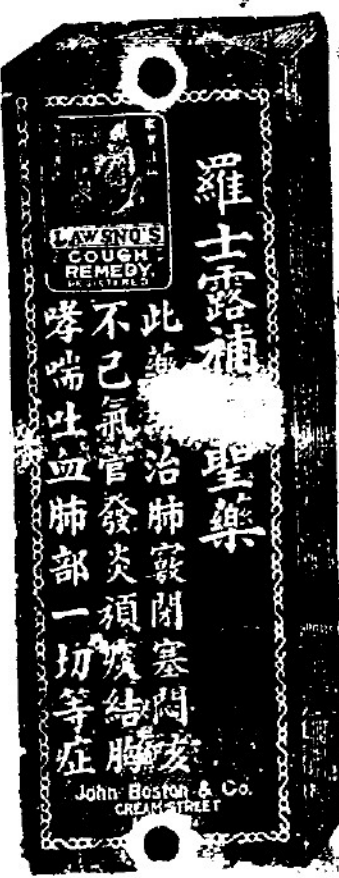 LAWSNO'S
COUGH
REMEDY.
REGISTERED
羅士露補聖藥
此藥治肺竅閉塞悶咳
不已氣管發炎頑痰結胸
哮喘吐血肺部一切等症
John Boston & Co.
CREAM STREET